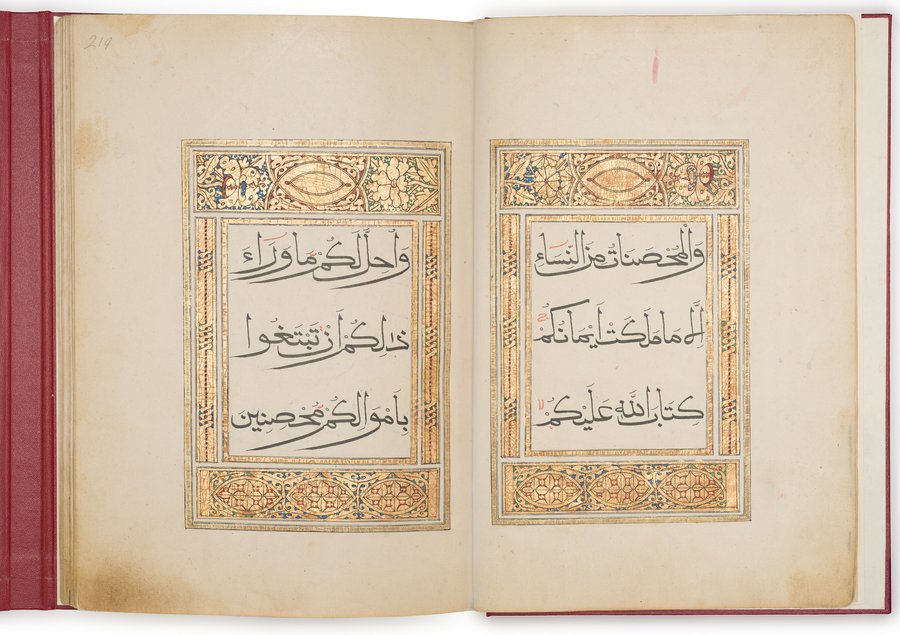 وَالْمُحْصَنَاتُ مِنَ النِّسَاءِ
إِلَّا مَا مَلَكَتْ أَيْمَانُكُمْ
كِتَابَ اللَّهِ عَلَيْكُمْ
وَأُحِلَّ لَكُمْ مَا وَرَاءَ
ذَٰلِكُمْ أَنْ تَبْتَغُوا
بِأَمْوَالِكُمْ مُحْصِنِينَ
219